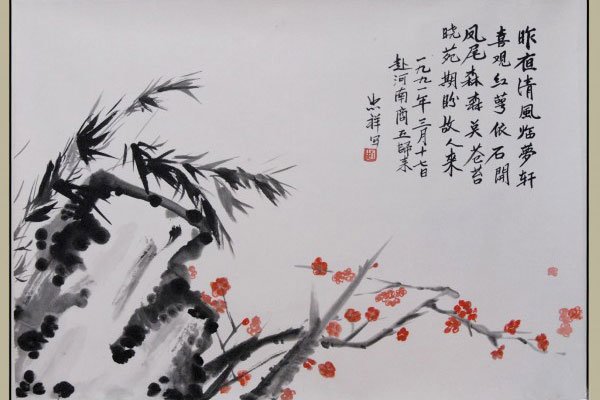 昨夜清风临梦轩
喜观红萼依石开
凤尾森森英苍苔
晓苑期盼故人来
一九九一年三月十七日
赴河南商丘归来
忠祥写